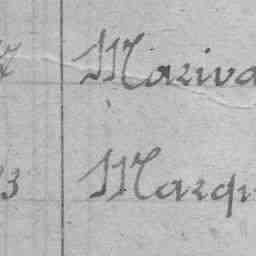 Mariva
3 Marqu